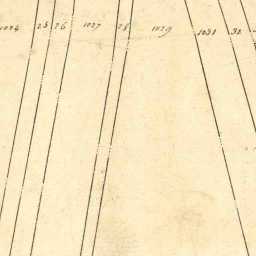 1024 25 26 1027 28 1029 1031 32